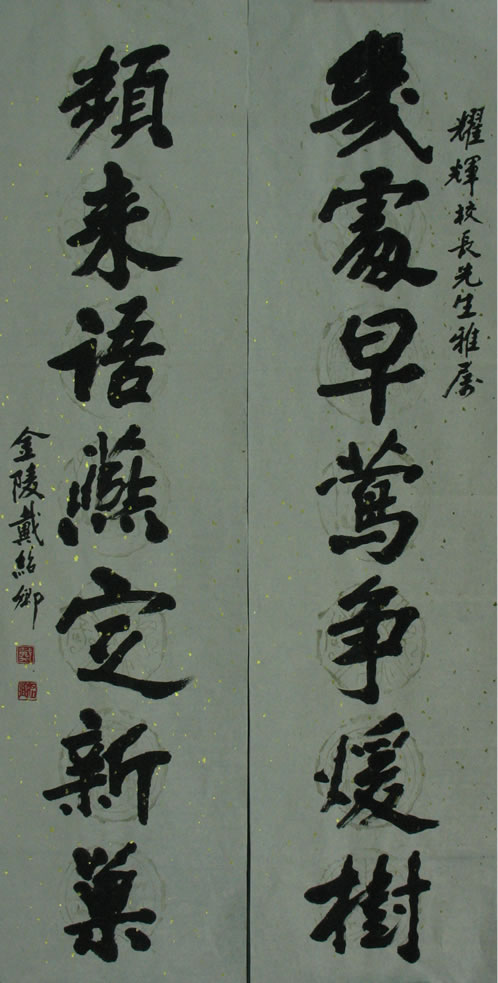 耀輝校長先生雅属
幾處早鶯争煖樹
頻来語燕定新巢
金陵戴紹卿